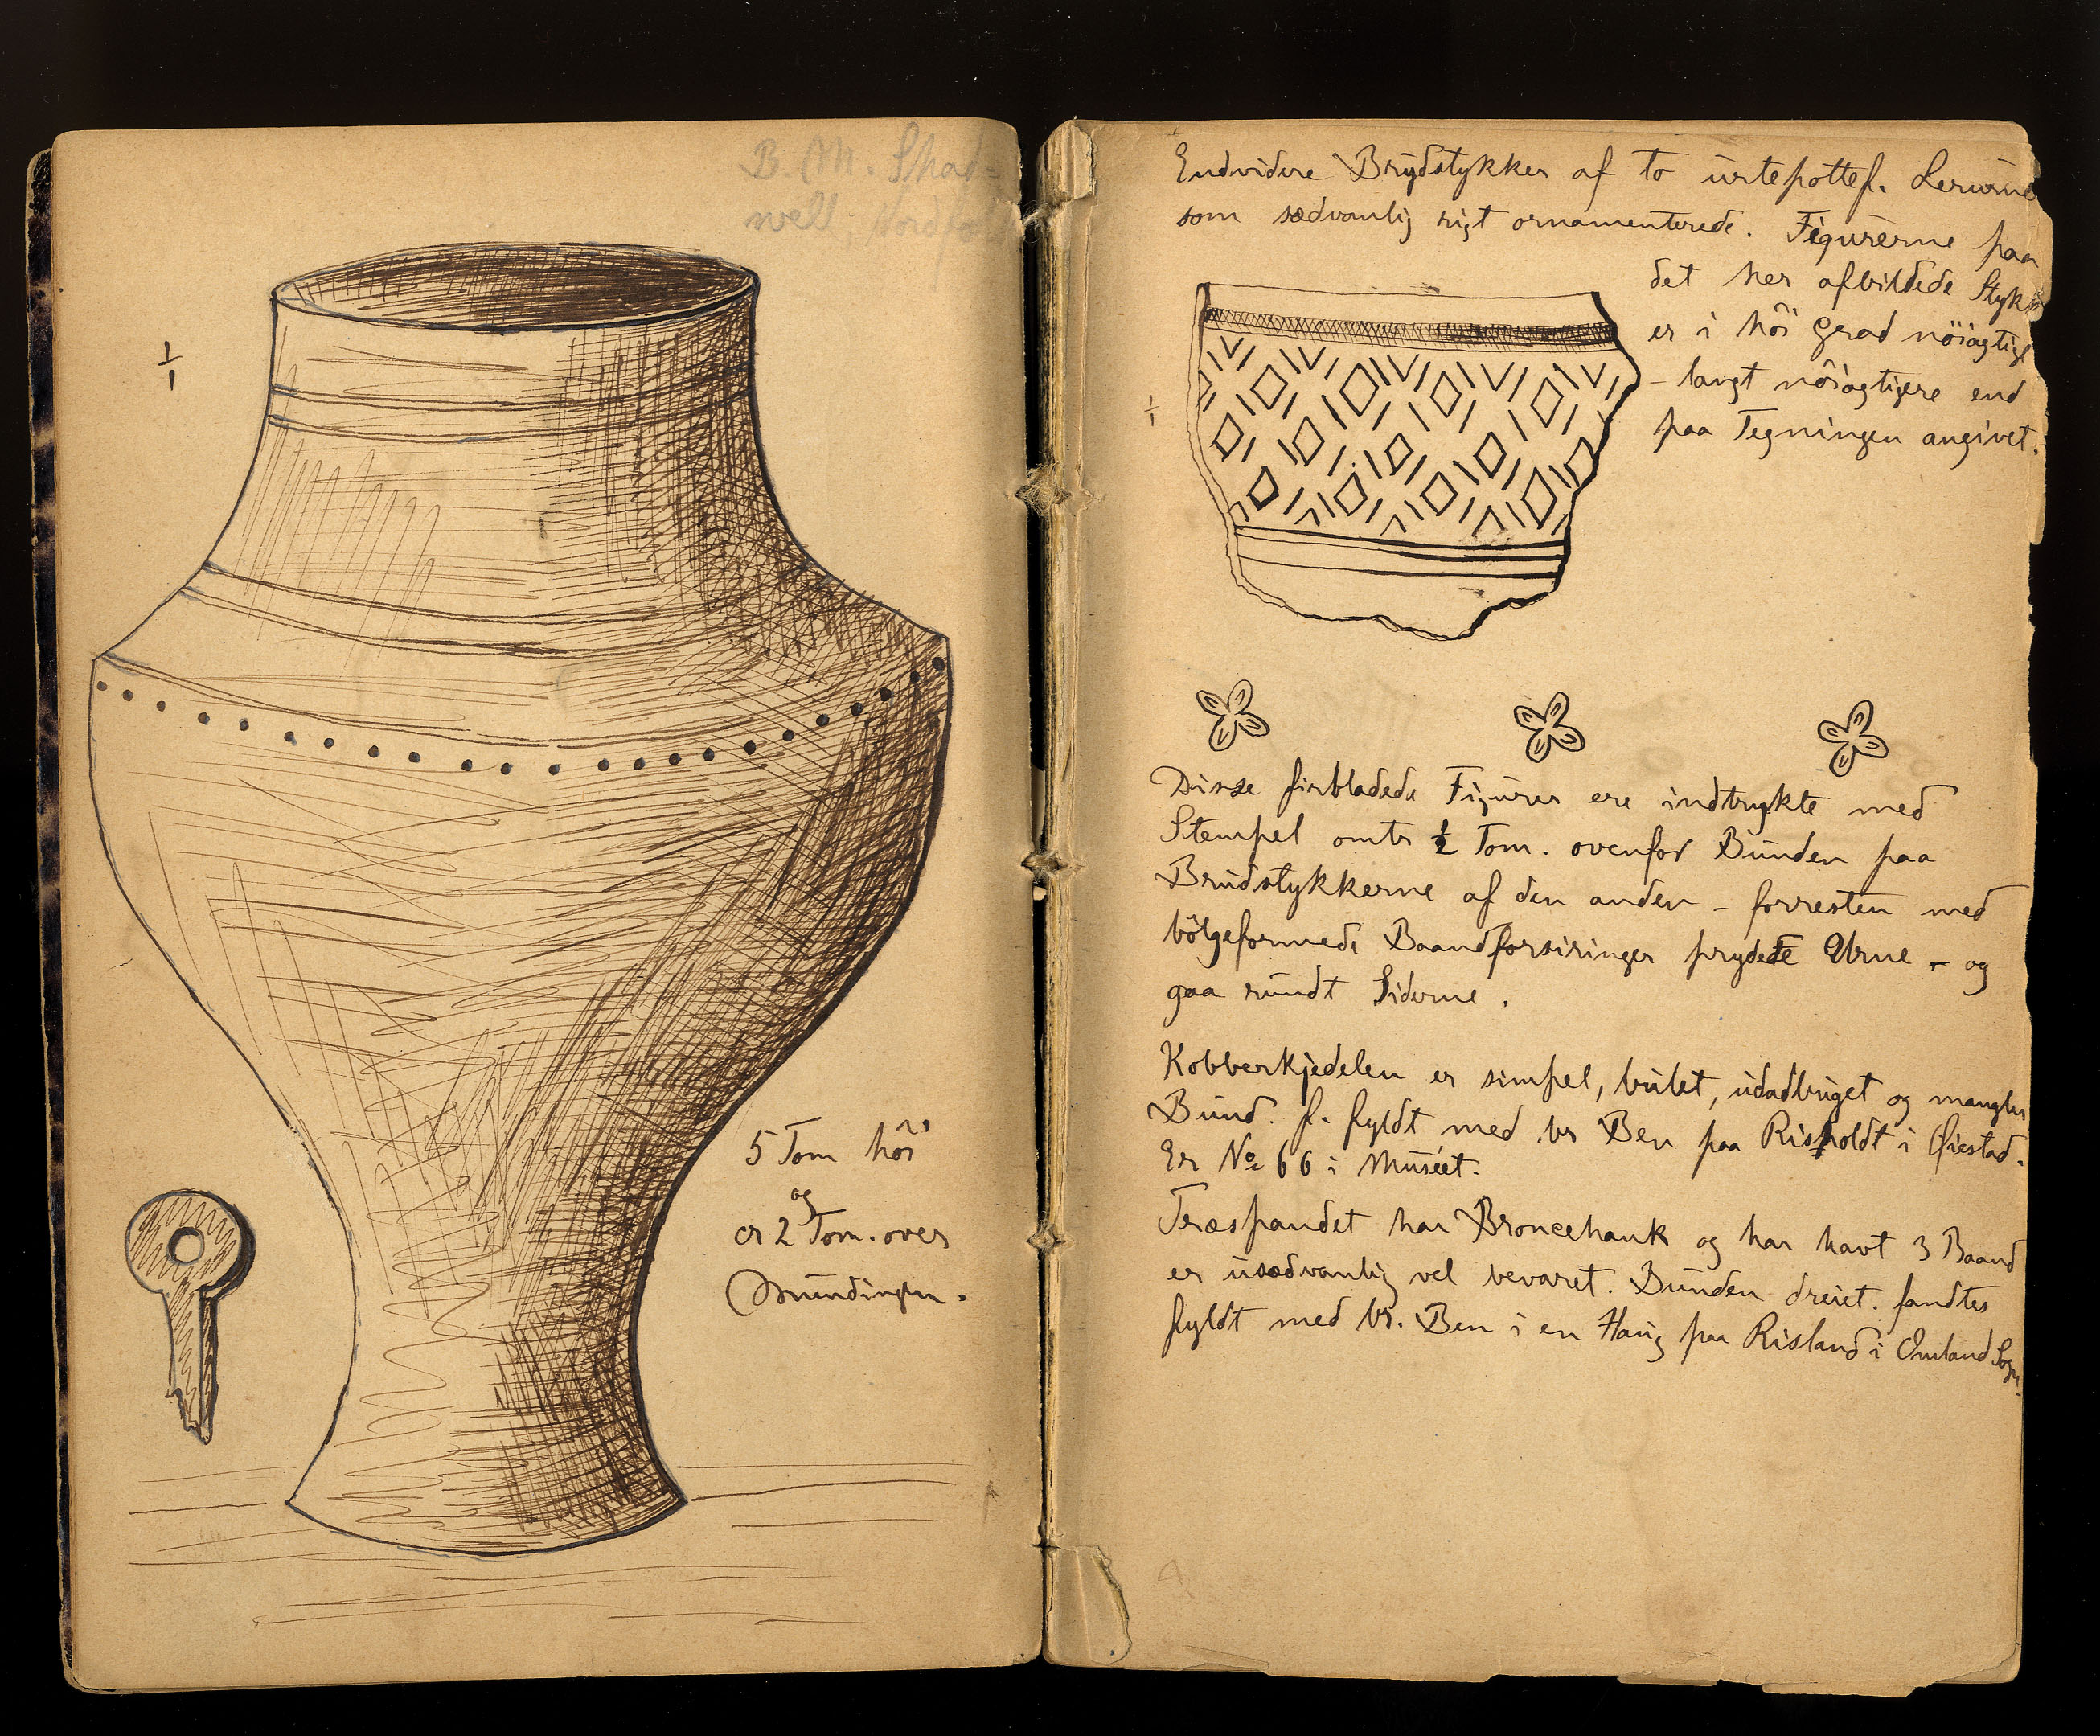 B. M. Shad-
well, Nordfol
1/1
5 Tom höi
og
er 2 Tom. over
Mundingen.
Endvidere Brudstykker af to urtepottef. Lerurne
som sædvanlig rigt ornamenterede. Figurerne paa
det her afbildede Stykke
er i höi Grad nöiagtige
- langt nöiagtigere end
paa Tegningen angivet.
1/1
Disse firbladede Figurer ere indtrykte med
Stempel omtr ½ Tom. ovenfor Bunden paa
Brudstykkerne af den anden - forresten med
bölgeformede Baandforsiringer prydede Urne - og
gaa rundt Siderne.
Kobberkjedelen er simpel, bulet, udadbuget og mangler
Bund. f. fyldt med br Ben paa Risholdt i Øiestad.
Er No 66 i Muséet.
Træspandet har Broncehank og har havt 3 Baand
er usædvanlig vel bevaret. Bunden dreiet. fandtes
fyldt med br. Ben i en Haug paa Risland i Omland Sogn.